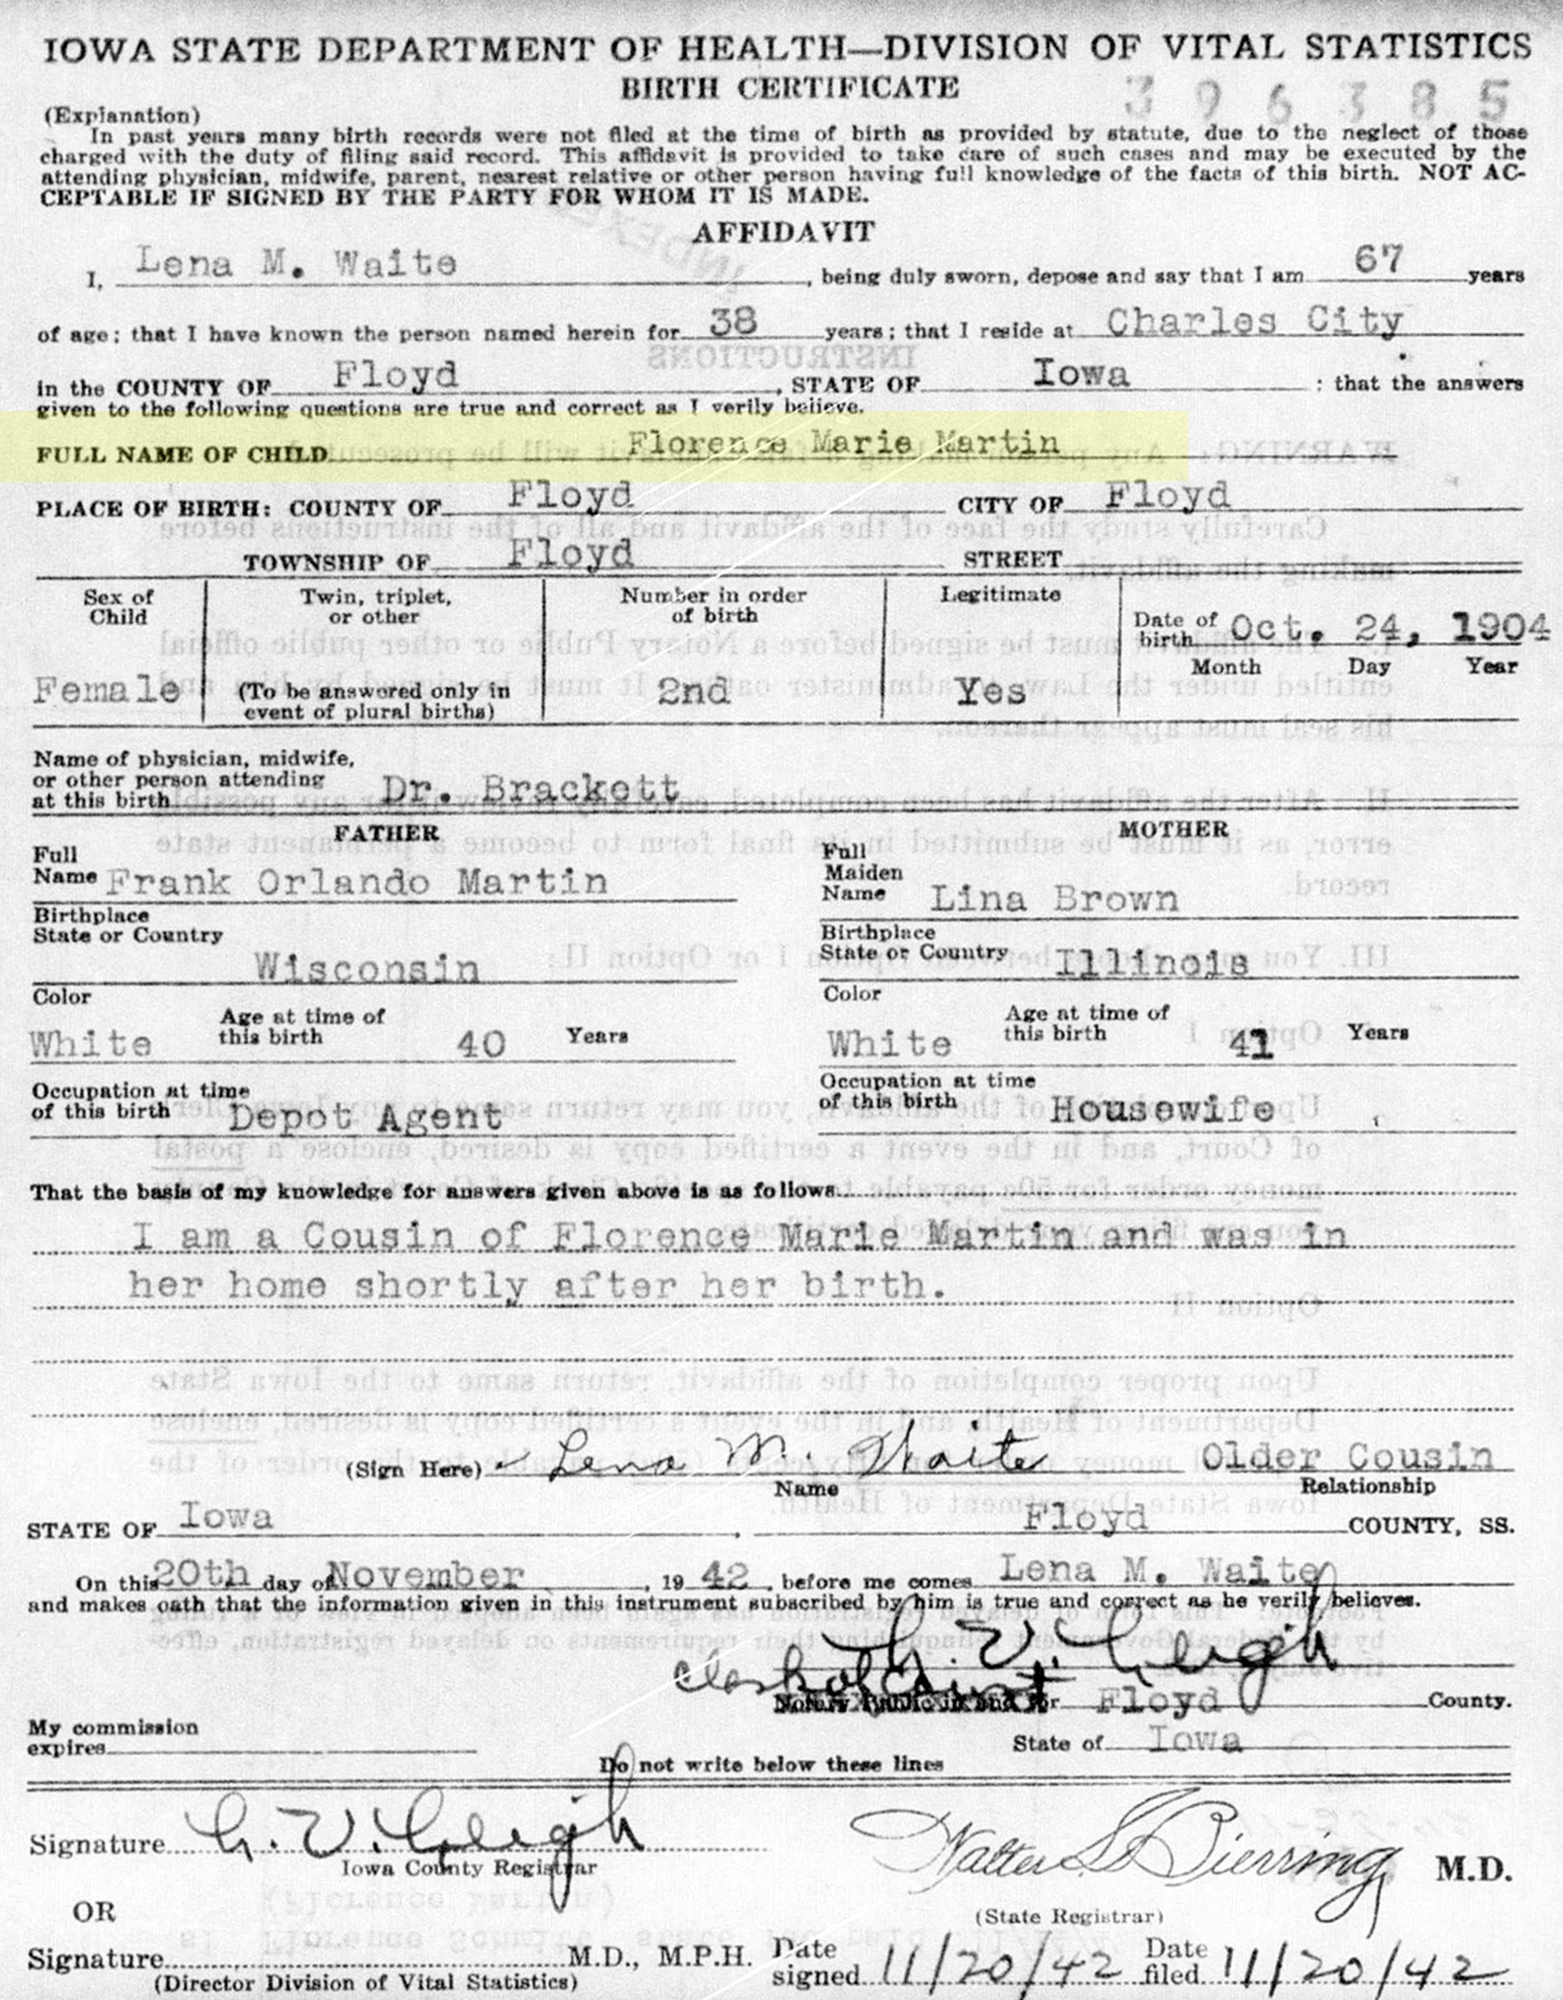 IOWA STATE DEPARTMENT OF HEALTH—DIVISION OF VITAL STATISTICS
BIRTH CERTIFICATE
396385
(Explanation)
In past years many birth records were not filed at the time of birth as provided by statute, due to the neglect of those
charged with the duty of filing said record. This affidavit is provided to take care of such cases and may be executed by the
attending physician, midwife, parent, nearest relative or other person having full knowledge of the facts of this birth. NOT AC-
CEPTABLE IF SIGNED BY THE PARTY FOR WHOM IT IS MADE.
INDEXED
AFFIDAVIT
I, Lena M. Waite, being duly sworn, depose and say that I am 67 years
of age; that I have known the person named herein for 38 years; that I reside at Charles City
in the COUNTY OF Floyd, STATE OF Iowa : that the answers
given to the following questions are true and correct as I verily believe.
FULL NAME OF CHILD Florence Marie Martin
PLACE OF BIRTH: COUNTY OF Floyd CITY OF Floyd
TOWNSHIP OF Floyd STREET
Sex of Child Female
Twin, triplet, or other
(To be answered only in event of plural births)
Number in order of birth 2nd
Legitimate Yes
Date of birth Oct. 24, 1904
Month Day Year
Name of physician, midwife,
or other person attending
at this birth Dr. Brackett
FATHER
Full
Name Frank Orlando Martin
Birthplace
State or Country
Wisconsin
Color
White
Age at time of
this birth 40 Years
Occupation at time
of this birth Depot Agent
MOTHER
Full
Maiden
Name Lina Brown
Birthplace
State or Country Illinois
Color
White
Age at time of
this birth 41 Years
Occupation at time
of this birth Housewife
That the basis of my knowledge for answers given above is as follows
I am a Cousin of Florence Marie Martin and was in
her home shortly after her birth.
(Sign Here) Lena M. Waite Older Cousin
Name Relationship
STATE OF Iowa, Floyd COUNTY, SS.
On this 20th day of November, 19 42, before me comes Lena M. Waite
and makes oath that the information given in this instrument subscribed by him is true and correct as he verily believes.
Clerk of Dist
Notary Public in and for Floyd County.
My commission
expires
State of Iowa
Do not write below these lines
Signature
Iowa County Registrar
Walter L Bierring M.D.
(State Registrar)
OR
Signature M.D., M.P.H.
(Director Division of Vital Statistics)
Date
signed 11/20/42
Date
filed 11/20/42